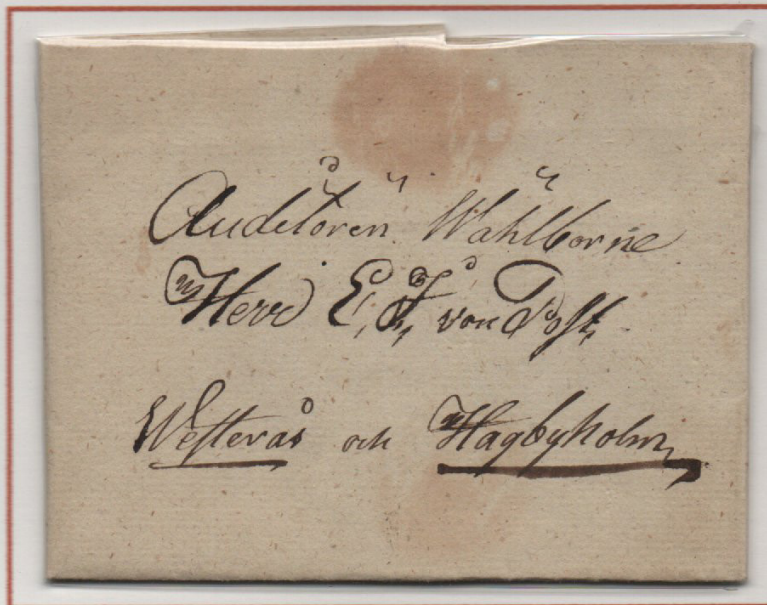 Auditören Wählborne
Herr E. F. von Post
Westerås och Hagbyholm